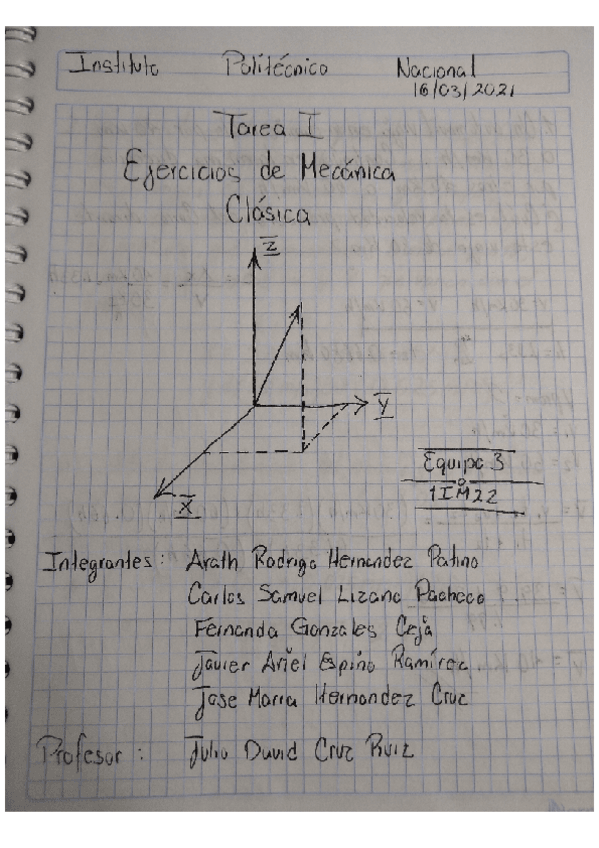 Instituto Politécnico Nacional
16/03/2021
Tarea I
Ejercicios de Mecánica
Clásica
Z
Y
X
Equipo 3
1IM22
Integrantes: Arath Rodrigo Hernandez Patino
Carlos Samuel Lizano Pacheco
Fernanda Gonzales Ceja
Javier Ariel Espino Ramírez
Jose Maria Hernandez Cruz
Profesor: Julio David Cruz Ruiz